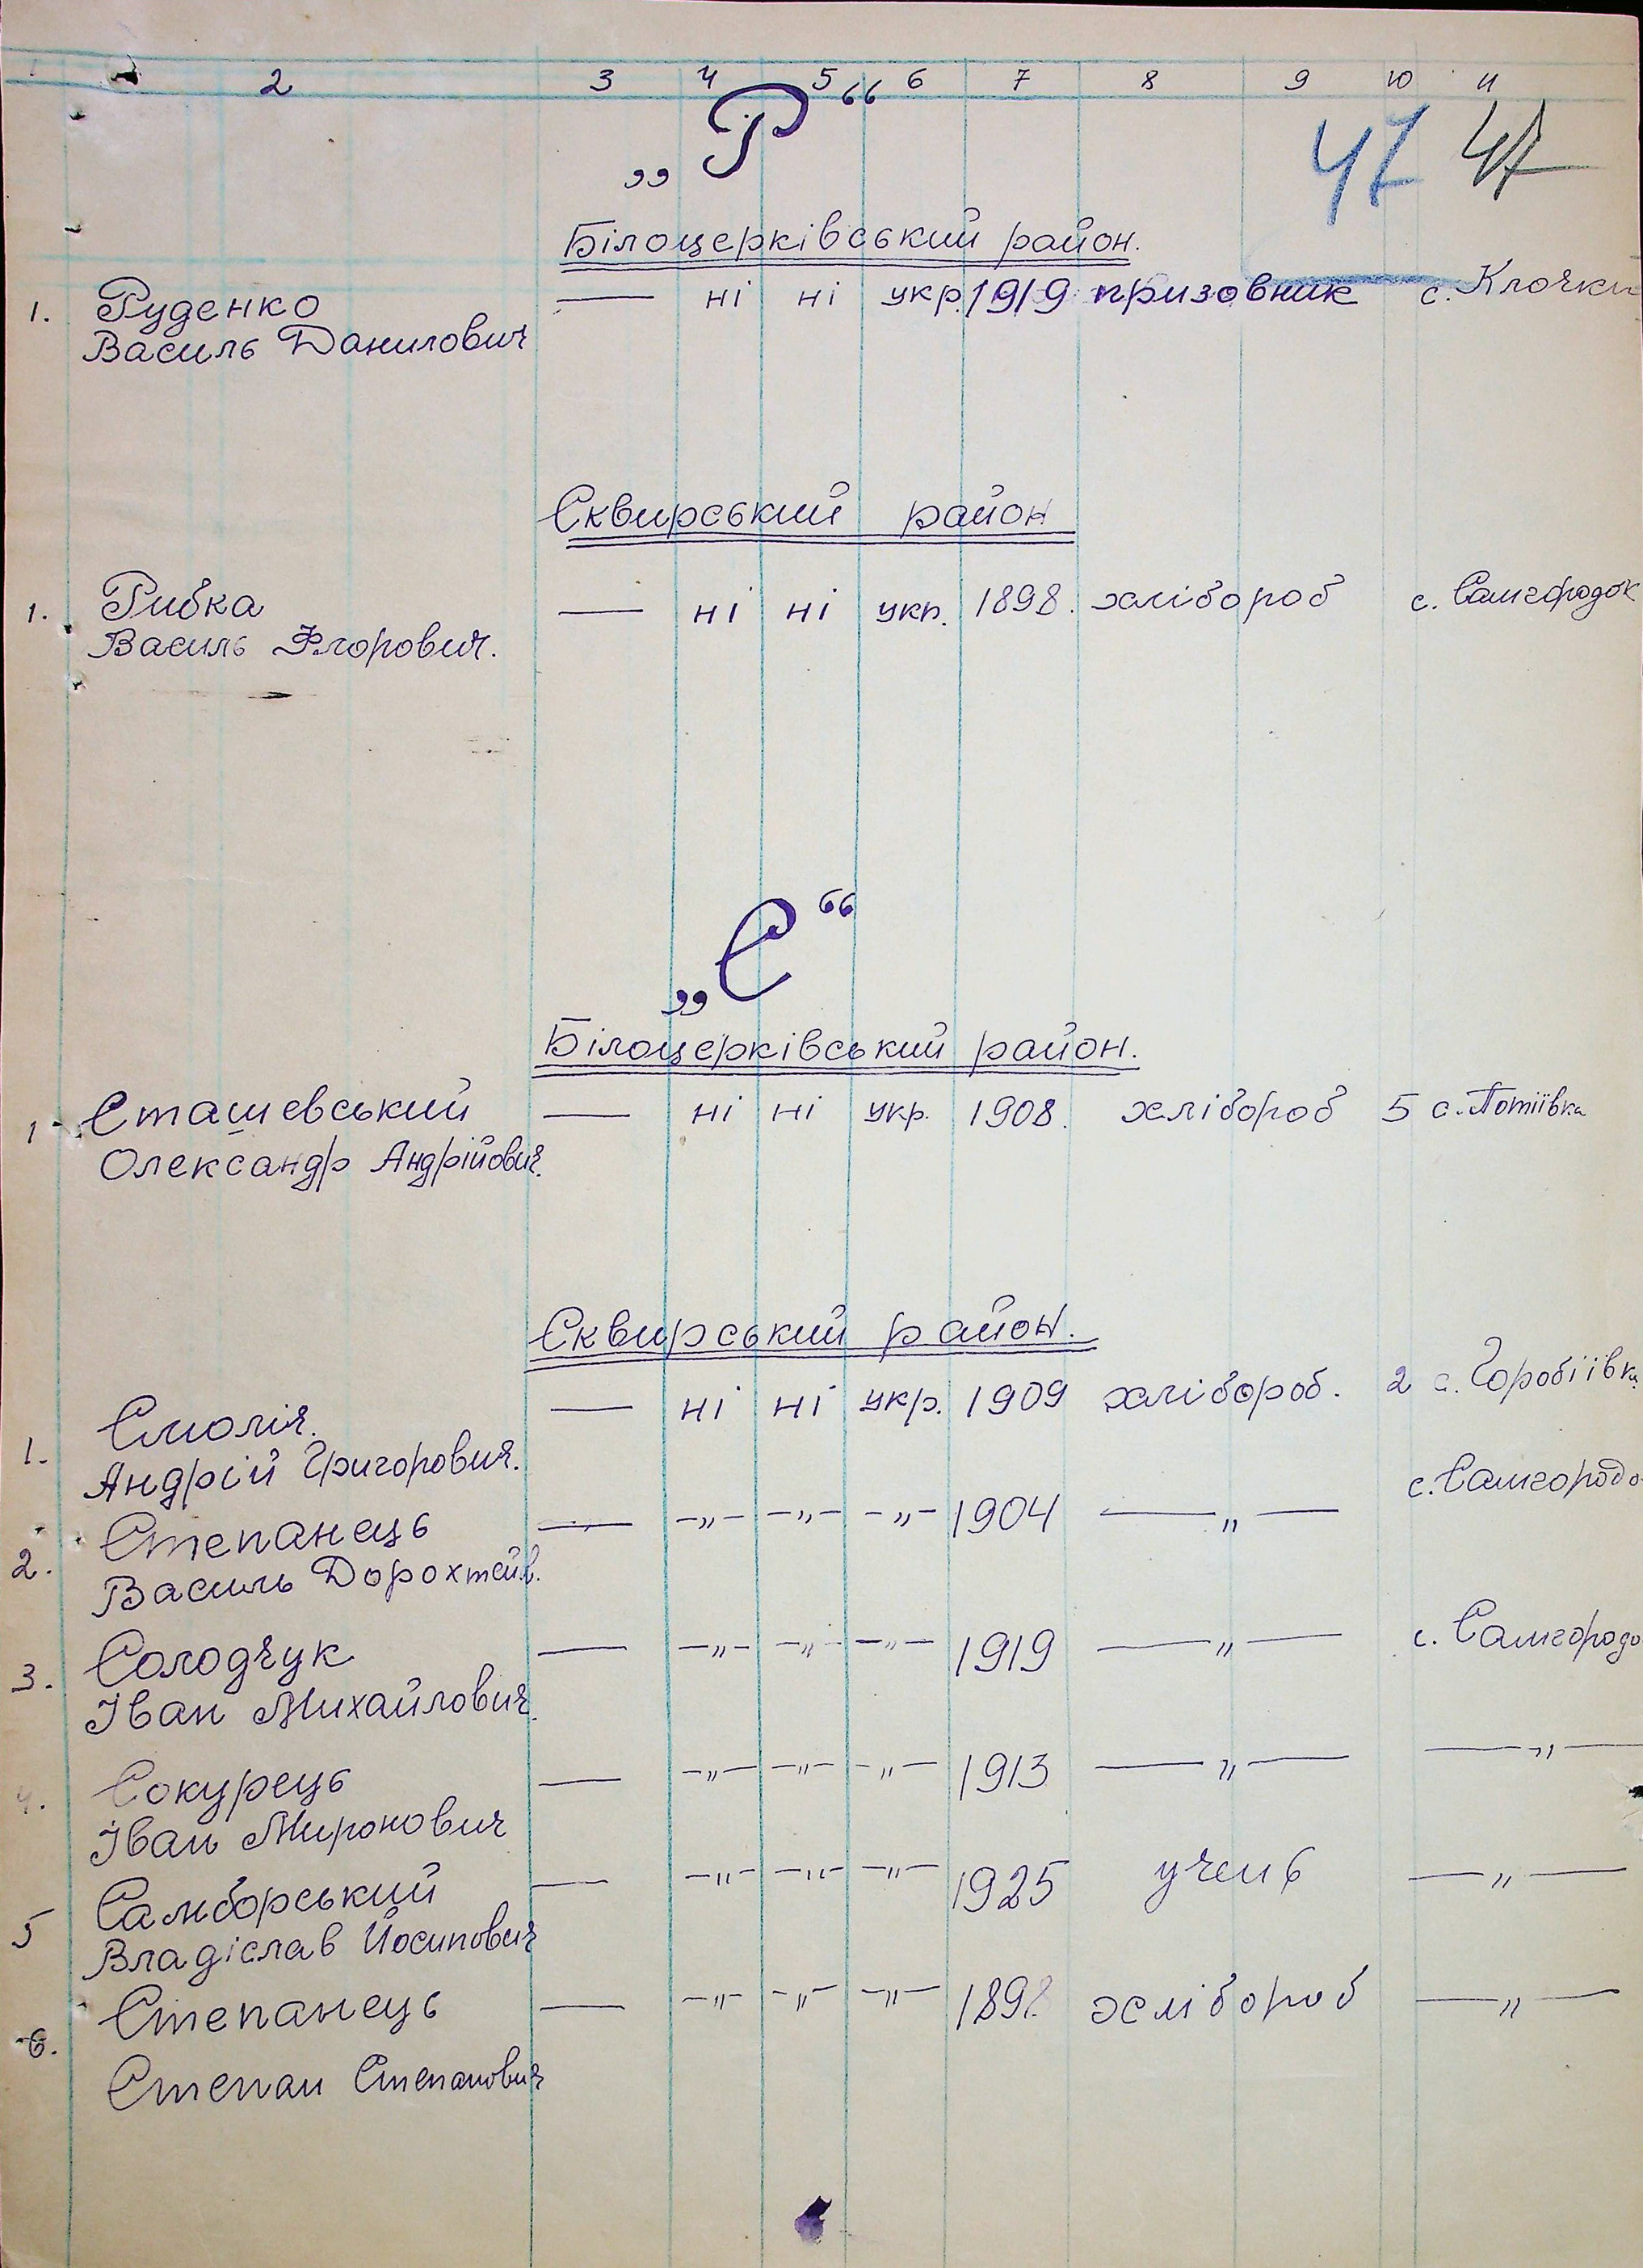 2 3 4 5 6 7 8 9 10 11
„Р“
47 47
Білоцерківський район.
1. Руденко — ні ні укр. 1919 призовник с. Клочки
Василь Данилович
Сквирський район
1. Рибка — ні ні укр. 1898. хлібороб с. Самгородок
Василь Ягорович.
„С“
Білоцерківський район.
1 Сташевський — ні ні укр. 1908. хлібороб 5 с. Потіївка
Олександр Андрійович.
Сквирський район.
1. Смоляр. — ні ні укр. 1909 хлібороб. 2 с. Горобіївка
Андрій Григорович.
2. Степанець — -„- -„- -„- 1904 —„— с. Самгородо
Василь Дорохтейв.
3. Солодчук — -„- -„- -„- 1919 —„— с. Самгородо
Іван Михайлович.
4. Сокурець — -„- -„- -„- 1913 —„— —„—
Іван Миронович
5 Самборський — -„- -„- -„- 1925 учень —„—
Владіслав Йосипович
6. Степанець — -„- -„- -„- 1898 хлібороб —„—
Степан Степанович